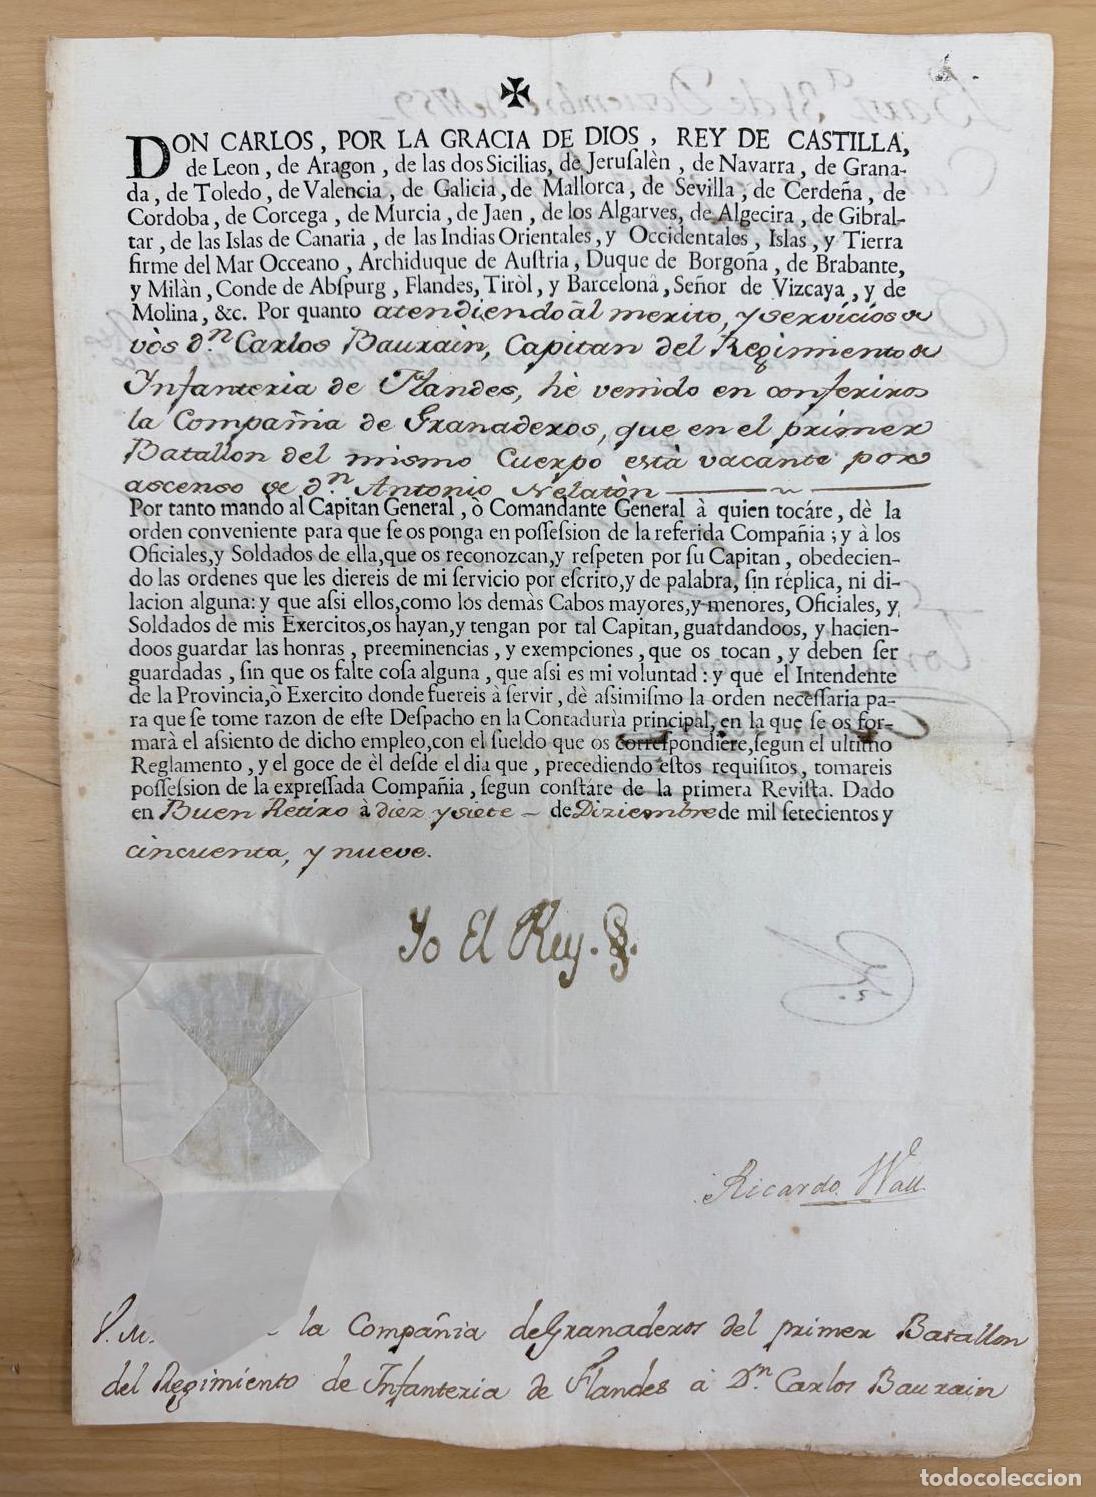 ✠
DON CARLOS, POR LA GRACIA DE DIOS, REY DE CASTILLA,
de Leon, de Aragon, de las dos Sicilias, de Jeruſalèn, de Navarra, de Grana-
da, de Toledo, de Valencia, de Galicia, de Mallorca, de Sevilla, de Cerdeña, de
Cordoba, de Corcega, de Murcia, de Jaen, de los Algarves, de Algecira, de Gibral-
tar, de las Islas de Canaria, de las Indias Orientales, y Occidentales, Islas, y Tierra
firme del Mar Occeano, Archiduque de Auſtria, Duque de Borgoña, de Brabante,
y Milàn, Conde de Abſpurg, Flandes, Tiròl, y Barcelona, Señor de Vizcaya, y de
Molina, &c. Por quanto atendiendo al merito, y servicios de
vòs d.n Carlos Bauxain, Capitan del Regimiento de
Infanteria de Flandes, hè venido en conferiros
la Compañia de Granaderos, que en el primer
Batallon del mismo Cuerpo està vacante por
ascenso de d.n Antonio Nelatòn
Por tanto mando al Capitan General, ò Comandante General à quien tocáre, dè la
orden conveniente para que ſe os ponga en poſſeſsion de la referida Compañia; y à los
Oficiales, y Soldados de ella, que os reconozcan, y reſpeten por ſu Capitan, obedecien-
do las ordenes que les diereis de mi ſervicio por eſcrito, y de palabra, ſin réplica, ni di-
lacion alguna: y que aſsi ellos, como los demàs Cabos mayores, y menores, Oficiales, y
Soldados de mis Exercitos, os hayan, y tengan por tal Capitan, guardandoos, y hacien-
doos guardar las honras, preeminencias, y exempciones, que os tocan, y deben ſer
guardadas, ſin que os falte coſa alguna, que aſsi es mi voluntad: y que el Intendente
de la Provincia, ò Exercito donde fuereis à ſervir, dè aſsimiſmo la orden neceſſaria pa-
ra que ſe tome razon de eſte Deſpacho en la Contaduria principal, en la que ſe os for-
marà el aſsiento de dicho empleo, con el ſueldo que os correſpondière, ſegun el ultimo
Reglamento, y el goce de èl desde el dia que, precediendo eſtos requiſitos, tomareis
poſſeſsion de la expreſſada Compañia, ſegun conſtáre de la primera Reviſta. Dado
en Buen Retiro à diez y siete de Diziembre de mil ſetecientos y
cincuenta, y nueve.
Yo El Rey.
Ricardo Wall
V. M. la Compañia de Granaderos del primer Batallon
del Regimiento de Infanteria de Flandes a D.n Carlos Bauxain
todocoleccion